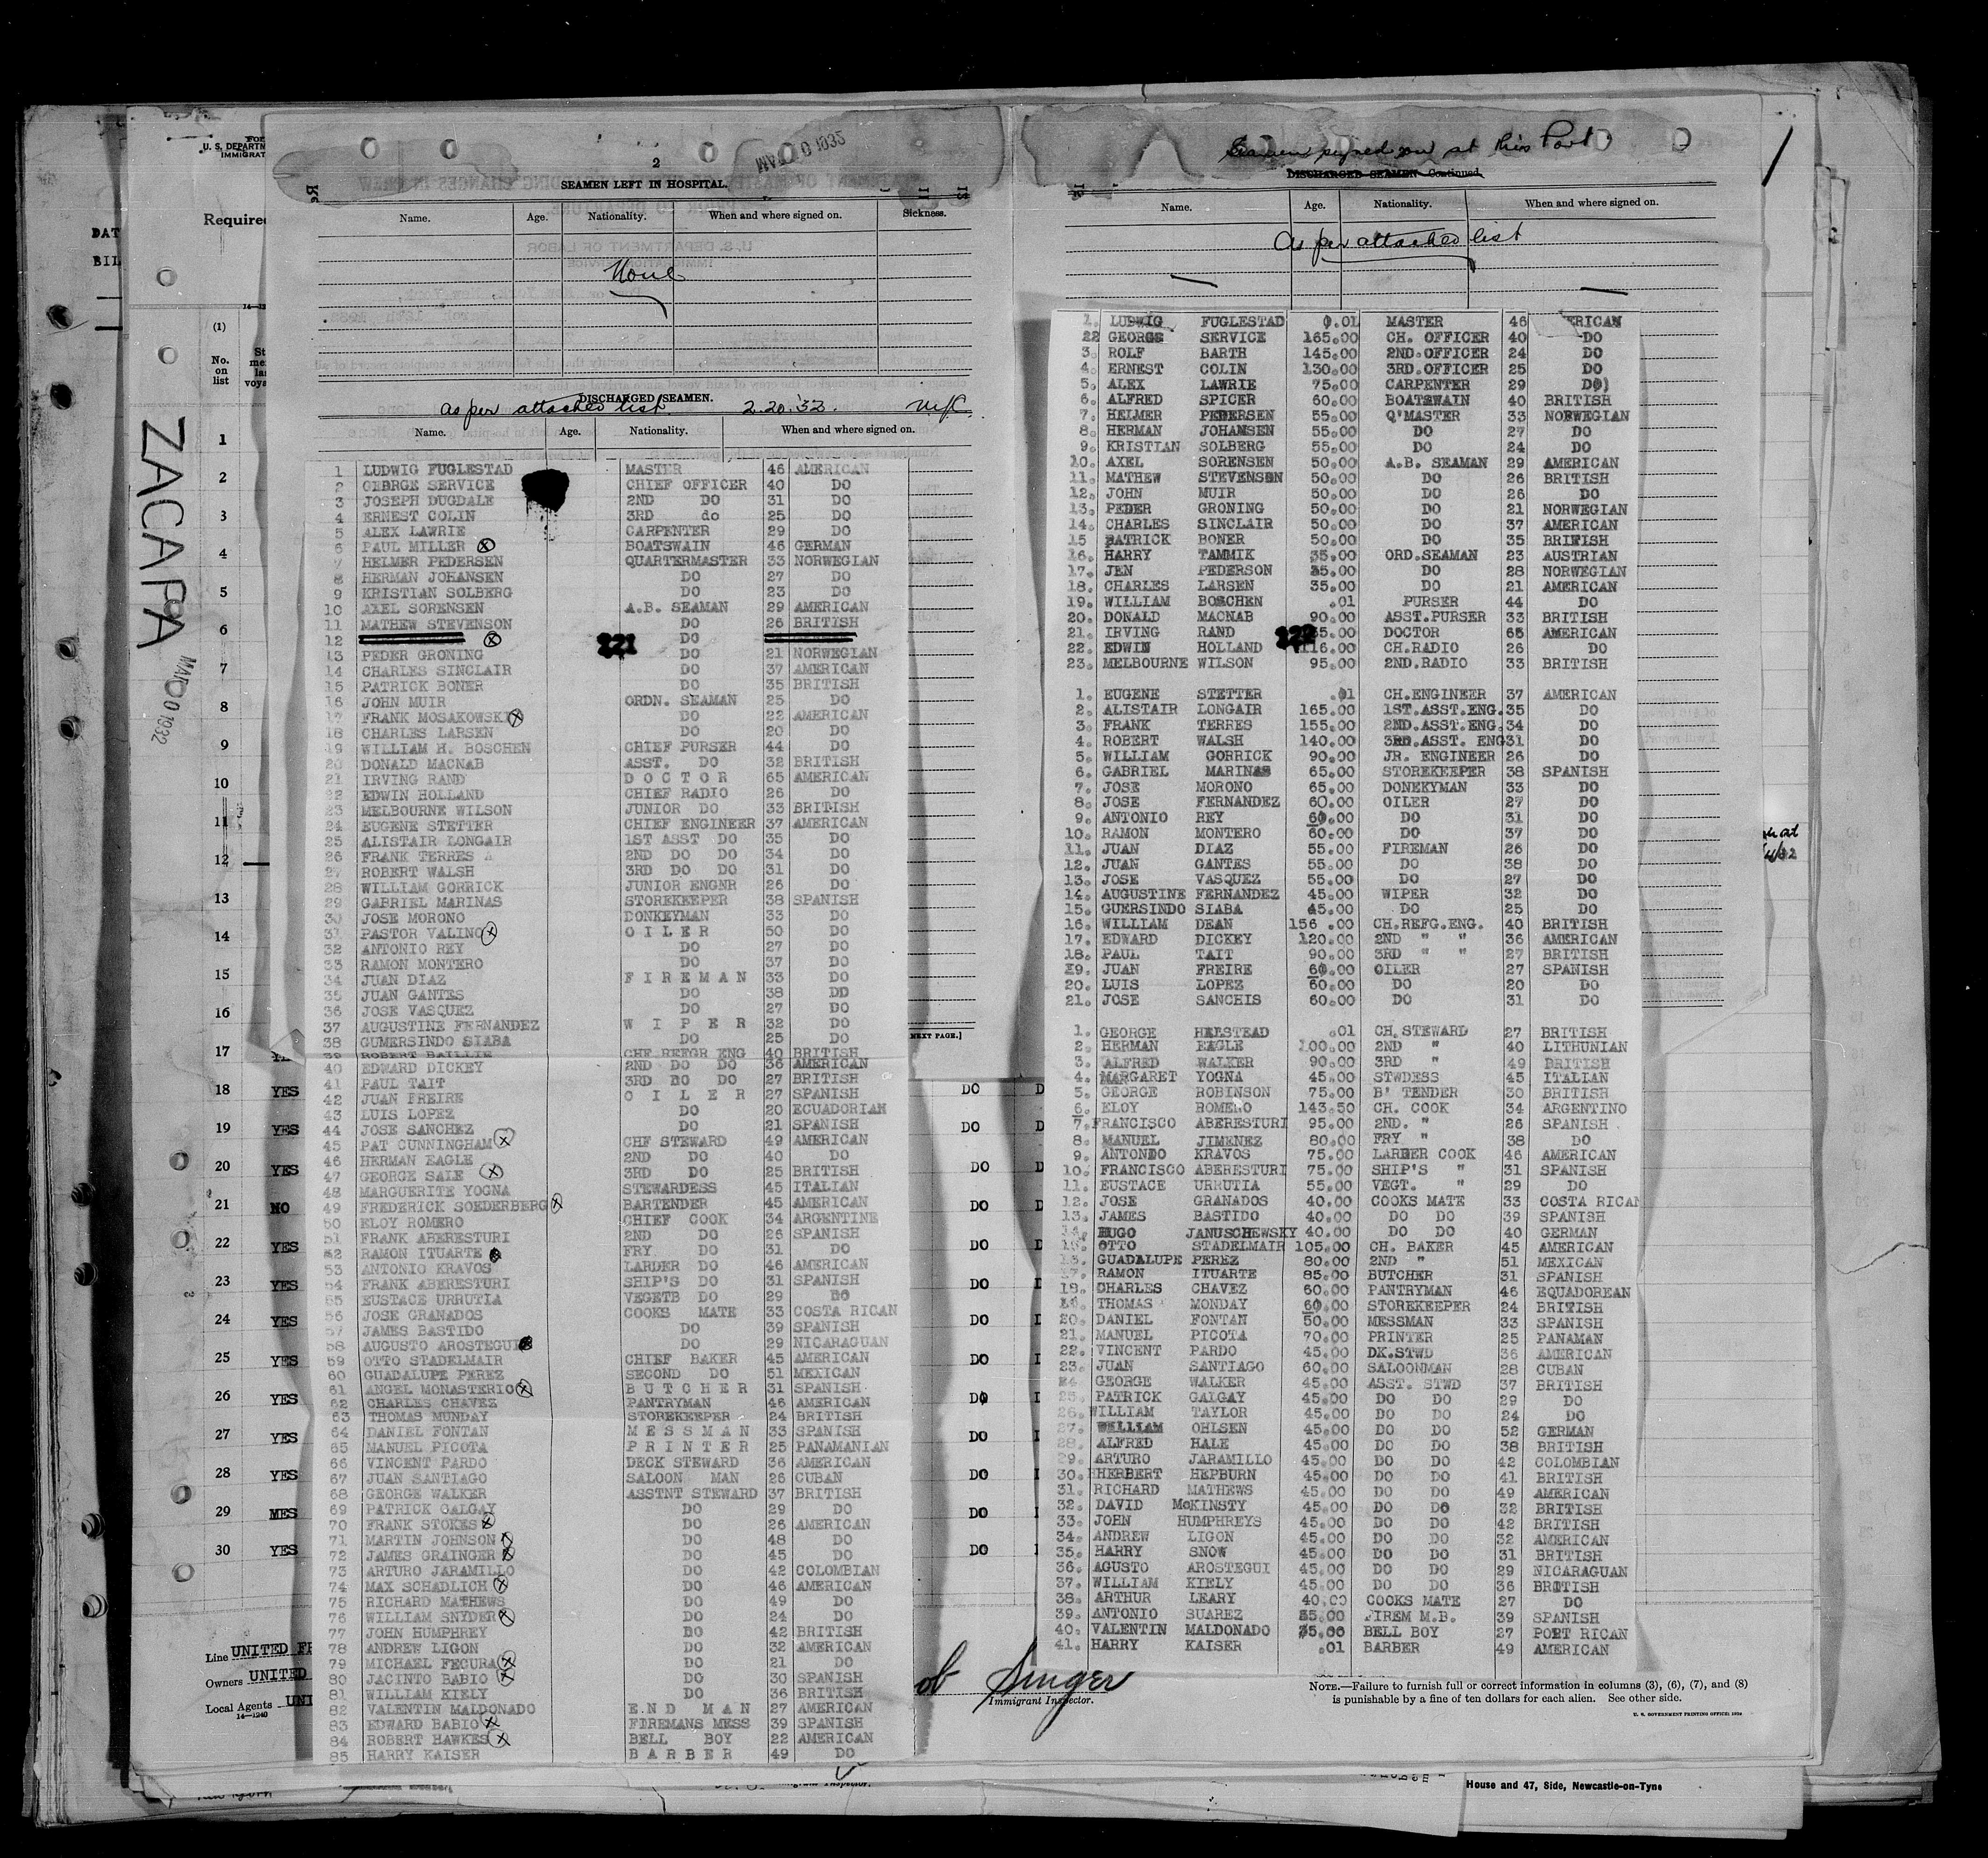 FOR
U. S. DEPARTM
IMMIGRAT
Required
DAT
BIL
(1)
No.
on
list
ZACAPA
1
2
3
4
5
6
7
8
9
10
11
12
13
14
15
16
17
18 YES
19 YES
20 YES
21 NO
22 YES
23 YES
24 YES
25 YES
26 YES
27 YES
28 YES
29 MES
30 YES
Line UNITED FR
Owners UNITED
Local Agents UNI
14—1240
2
SEAMEN LEFT IN HOSPITAL.
Name. Age. Nationality. When and where signed on. Sickness.
None
DISCHARGED SEAMEN.
as per attached list 2.20.32.
Name. Age. Nationality. When and where signed on.
1 LUDWIG FUGLESTAD MASTER 46 AMERICAN
2 GEORGE SERVICE CHIEF OFFICER 40 DO
3 JOSEPH DUGDALE 2ND DO 31 DO
4 ERNEST COLIN 3RD do 25 DO
5 ALEX LAWRIE CARPENTER 29 DO
6 PAUL MILLER BOATSWAIN 46 GERMAN
7 HELMER PEDERSEN QUARTERMASTER 33 NORWEGIAN
8 HERMAN JOHANSEN DO 27 DO
9 KRISTIAN SOLBERG DO 23 DO
10 AXEL SORENSEN A.B. SEAMAN 29 AMERICAN
11 MATHEW STEVENSON DO 26 BRITISH
12 DO
221
13 PEDER GRONING DO 21 NORWEGIAN
14 CHARLES SINCLAIR DO 37 AMERICAN
15 PATRICK BONER DO 35 BRITISH
16 JOHN MUIR ORDN. SEAMAN 25 DO
17 FRANK MOSAKOWSKI DO 22 AMERICAN
18 CHARLES LARSEN DO 20 DO
19 WILLIAM H. BOSCHEN CHIEF PURSER 44 DO
20 DONALD MACNAB ASST. DO 32 BRITISH
21 IRVING RAND D O C T O R 65 AMERICAN
22 EDWIN HOLLAND CHIEF RADIO 26 DO
23 MELBOURNE WILSON JUNIOR DO 33 BRITISH
24 EUGENE STETTER CHIEF ENGINEER 37 AMERICAN
25 ALISTAIR LONGAIR 1ST ASST DO 35 DO
26 FRANK TERRES 2ND DO DO 34 DO
27 ROBERT WALSH 3RD DO DO 31 DO
28 WILLIAM GORRICK JUNIOR ENGNR 26 DO
29 GABRIEL MARINAS STOREKEEPER 38 SPANISH
30 JOSE MORONO DONKEYMAN 33 DO
31 PASTOR VALINO O I L E R 50 DO
32 ANTONIO REY DO 27 DO
33 RAMON MONTERO DO 37 DO
34 JUAN DIAZ F I R E M A N 33 DO
35 JUAN GANTES DO 38 DD
36 JOSE VASQUEZ DO 27 DO
37 AUGUSTINE FERNANDEZ W I P E R 32 DO
38 GUMERSINDO SIABA DO 25 DO
39 ROBERT BAILLIE CHF REFGR ENG 40 BRITISH
40 EDWARD DICKEY 2ND DO DO 36 AMERICAN
41 PAUL TAIT 3RD DO DO 27 BRITISH
42 JUAN FREIRE O I L E R 27 SPANISH
43 LUIS LOPEZ DO 20 ECUADORIAN
44 JOSE SANCHEZ DO 21 SPANISH
45 PAT CUNNINGHAM CHF STEWARD 49 AMERICAN
46 HERMAN EAGLE 2ND DO 40 DO
47 GEORGE SALE 3RD DO 25 BRITISH
48 MARGUERITE YOGNA STEWARDESS 45 ITALIAN
49 FREDERICK SOEDERBERG BARTENDER 45 AMERICAN
50 ELOY ROMERO CHIEF COOK 34 ARGENTINE
51 FRANK ABERESTURI 2ND DO 26 SPANISH
52 RAMON ITUARTE FRY. DO 31 DO
53 ANTONIO KRAVOS LARDER DO 46 AMERICAN
54 FRANK ABERESTURI SHIP'S DO 31 SPANISH
55 EUSTACE URRUTIA VEGETB DO 29 DO
56 JOSE GRANADOS COOKS MATE 33 COSTA RICAN
57 JAMES BASTIDO DO 39 SPANISH
58 AUGUSTO AROSTEGUI DO 29 NICARAGUAN
59 OTTO STADELMAIR CHIEF BAKER 45 AMERICAN
60 GUADALUPE PEREZ SECOND DO 51 MEXICAN
61 ANGEL MONASTERIO B U T C H E R 31 SPANISH
62 CHARLES CHAVEZ PANTRYMAN 46 AMERICAN
63 THOMAS MUNDAY STOREKEEPER 24 BRITISH
64 DANIEL FONTAN M E S S M A N 33 SPANISH
65 MANUEL PICOTA P R I N T E R 25 PANAMANIAN
66 VINCENT PARDO DECK STEWARD 36 AMERICAN
67 JUAN SANTIAGO SALOON MAN 26 CUBAN
68 GEORGE WALKER ASSTNT STEWARD 37 BRITISH
69 PATRICK GALGAY DO 29 DO
70 FRANK STOKES DO 26 AMERICAN
71 MARTIN JOHNSON DO 48 DO
72 JAMES GRAINGER DO 45 DO
73 ARTURO JARAMILLO DO 42 COLOMBIAN
74 MAX SCHADLICH DO 46 AMERICAN
75 RICHARD MATHEWS DO 49 DO
76 WILLIAM SNYDER DO 24 DO
77 JOHN HUMPHREY DO 42 BRITISH
78 ANDREW LIGON DO 32 AMERICAN
79 MICHAEL FECURA DO 21 DO
80 JACINTO BABIO DO 30 SPANISH
81 WILLIAM KIELY DO 36 BRITISH
82 VALENTIN MALDONADO E.N D M A N 27 AMERICAN
83 EDWARD BABIO FIREMANS MESS 39 SPANISH
84 ROBERT HAWKES BELL BOY 22 AMERICAN
85 HARRY KAISER B A R B E R 49 DO
NEXT PAGE.]
Seamen signed on at this Port
DISCHARGED SEAMEN—Continued
Name. Age. Nationality. When and where signed on.
As per attached list
1. LUDWIG FUGLESTAD 0.01 MASTER 46 ERICAN
22 GEORGE SERVICE 165.00 CH. OFFICER 40 DO
3. ROLF BARTH 145.00 2ND.OFFICER 24 DO
4. ERNEST COLIN 130.00 3RD.OFFICER 25 DO
5. ALEX LAWRIE 75.00 CARPENTER 29 DO)
6. ALFRED SPICER 60.00 BOATSWAIN 40 BRITISH
7. HELMER PEDERSEN 55.00 Q'MASTER 33 NORWEGIAN
8. HERMAN JOHANSEN 55.00 DO 27 DO
9. KRISTIAN SOLBERG 55.00 DO 24 DO
10. AXEL SORENSEN 50.00 A.B. SEAMAN 29 AMERICAN
11. MATHEW STEVENSON 50.00 DO 26 BRITISH
12. JOHN MUIR 50.00 DO 26 DO
13. PEDER GRONING 50.00 DO 21 NORWEGIAN
14. CHARLES SINCLAIR 50.00 DO 37 AMERICAN
15 PATRICK BONER 50.00 DO 35 BRITISH
16. HARRY TAMMIK 35.00 ORD.SEAMAN 23 AUSTRIAN
17. JEN PEDERSON 35.00 DO 28 NORWEGIAN
18. CHARLES LARSEN 35.00 DO 21 AMERICAN
19. WILLIAM BOSCHEN .01 PURSER 44 DO
20. DONALD MACNAB 90.00 ASST.PURSER 33 BRITISH
21. IRVING RAND 122 5.00 DOCTOR 65 AMERICAN
22. EDWIN HOLLAND 116.00 CH.RADIO 26 DO
23. MELBOURNE WILSON 95.00 2ND.RADIO 33 BRITISH
1. EUGENE STETTER .01 CH.ENGINEER 37 AMERICAN
2. ALISTAIR LONGAIR 165.00 1ST.ASST.ENG. 35 DO
3. FRANK TERRES 155.00 2ND.ASST.ENG. 34 DO
4. ROBERT WALSH 140.00 3RD.ASST. ENG 31 DO
5. WILLIAM GORRICK 90.00 JR. ENGINEER 26 DO
6. GABRIEL MARINAS 65.00 STOREKEEPER 38 SPANISH
7. JOSE MORONO 65.00 DONEKYMAN 33 DO
8. JOSE FERNANDEZ 60.00 OILER 27 DO
9. ANTONIO REY 60.00 DO 31 DO
10. RAMON MONTERO 60.00 DO 37 DO
11. JUAN DIAZ 55.00 FIREMAN 26 DO
12. JUAN GANTES 55.00 DO 38 DO
13. JOSE VASQUEZ 55.00 DO 27 DO
14. AUGUSTINE FERNANDEZ 45.00 WIPER 32 DO
15. GUERSINDO SIABA 45.00 DO 25 DO
16. WILLIAM DEAN 156 .00 CH.REFG.ENG. 40 BRITISH
17. EDWARD DICKEY 120.00 2ND " " 36 AMERICAN
18. PAUL TAIT 90.00 3RD " " 27 BRITISH
19. JUAN FREIRE 60.00 OILER 27 SPANISH
20. LUIS LOPEZ 60.00 DO 20 DO
21. JOSE SANCHIS 60.00 DO 31 DO
1. GEORGE HELSTEAD .01 CH.STEWARD 27 BRITISH
2. HERMAN EAGLE 100.00 2ND " 40 LITHUNIAN
3. ALFRED WALKER 90.00 3RD " 49 BRITISH
4. MARGARET YOGNA 45.00 STWDESS 45 ITALIAN
5. GEORGE ROBINSON 75.00 B' TENDER 30 BRITISH
6. ELOY ROMERO 143.50 CH. COOK 34 ARGENTINO
7. FRANCISCO ABERESTURI 95.00 2ND. " 26 SPANISH
8. MANUEL JIMENEZ 80.00 FRY " 38 DO
9. ANTONDO KRAVOS 75.00 LARDER COOK 46 AMERICAN
10. FRANCISCO ABERESTURI 75.00 SHIP'S " 31 SPANISH
11. EUSTACE URRUTIA 55.00 VEGT. " 29 DO
12. JOSE GRANADOS 40.00 COOKS MATE 33 COSTA RICAN
13. JAMES BASTIDO 40.00 DO DO 39 SPANISH
14. HUGO JANUSCHEWSKY 40.00 DO DO 40 GERMAN
15. OTTO STADELMAIR 105.00 CH. BAKER 45 AMERICAN
16. GUADALUPE PEREZ 80.00 2ND " 51 MEXICAN
17. RAMON ITUARTE 85.00 BUTCHER 31 SPANISH
18. CHARLES CHAVEZ 60.00 PANTRYMAN 46 EQUADOREAN
19. THOMAS MONDAY 60.00 STOREKEEPER 24 BRITISH
20. DANIEL FONTAN 50.00 MESSMAN 33 SPANISH
21. MANUEL PICOTA 70.00 PRINTER 25 PANAMAN
22. VINCENT PARDO 45.00 DK.STWD 36 AMERICAN
23. JUAN SANTIAGO 60.00 SALOONMAN 28 CUBAN
24. GEORGE WALKER 45.00 ASST. STWD 37 BRITISH
25. PATRICK GALGAY 45.00 DO DO 29 DO
26. WILLIAM TAYLOR 45.00 DO DO 24 DO
27. WILLIAM OHLSEN 45.00 DO DO 52 GERMAN
28. ALFRED HALE 45.00 DO DO 38 BRITISH
29. ARTURO JARAMILLO 45.00 DO DO 42 COLOMBIAN
30. HHERBERT HEPBURN 45.00 DO DO 41 BRITISH
31. RICHARD MATHEWS 45.00 DO DO 49 AMERICAN
32. DAVID McKINSTY 45.00 DO DO 32 BRITISH
33. JOHN HUMPHREYS 45.00 DO DO 42 BRITISH
34. ANDREW LIGON 45.00 DO DO 32 AMERICAN
35. HARRY SNOW 45.00 DO DO 31 BRITISH
36. AGUSTO AROSTEGUI 45.00 DO DO 29 NICARAGUAN
37. WILLIAM KIELY 45.00 DO DO 36 BRITISH
38. ARTHUR LEARY 40.00 COOKS MATE 27 DO
39. ANTONIO SUAREZ 35.00 FIREM M.B. 39 SPANISH
40. VALENTIN MALDONADO 35.00 BELL BOY 27 PORT RICAN
41. HARRY KAISER .01 BARBER 49 AMERICAN
Singer
Immigrant Inspector.
NOTE.—Failure to furnish full or correct information in columns (3), (6), (7), and (8)
is punishable by a fine of ten dollars for each alien. See other side.
U. S. GOVERNMENT PRINTING OFFICE
House and 47, Side, Newcastle-on-Tyne